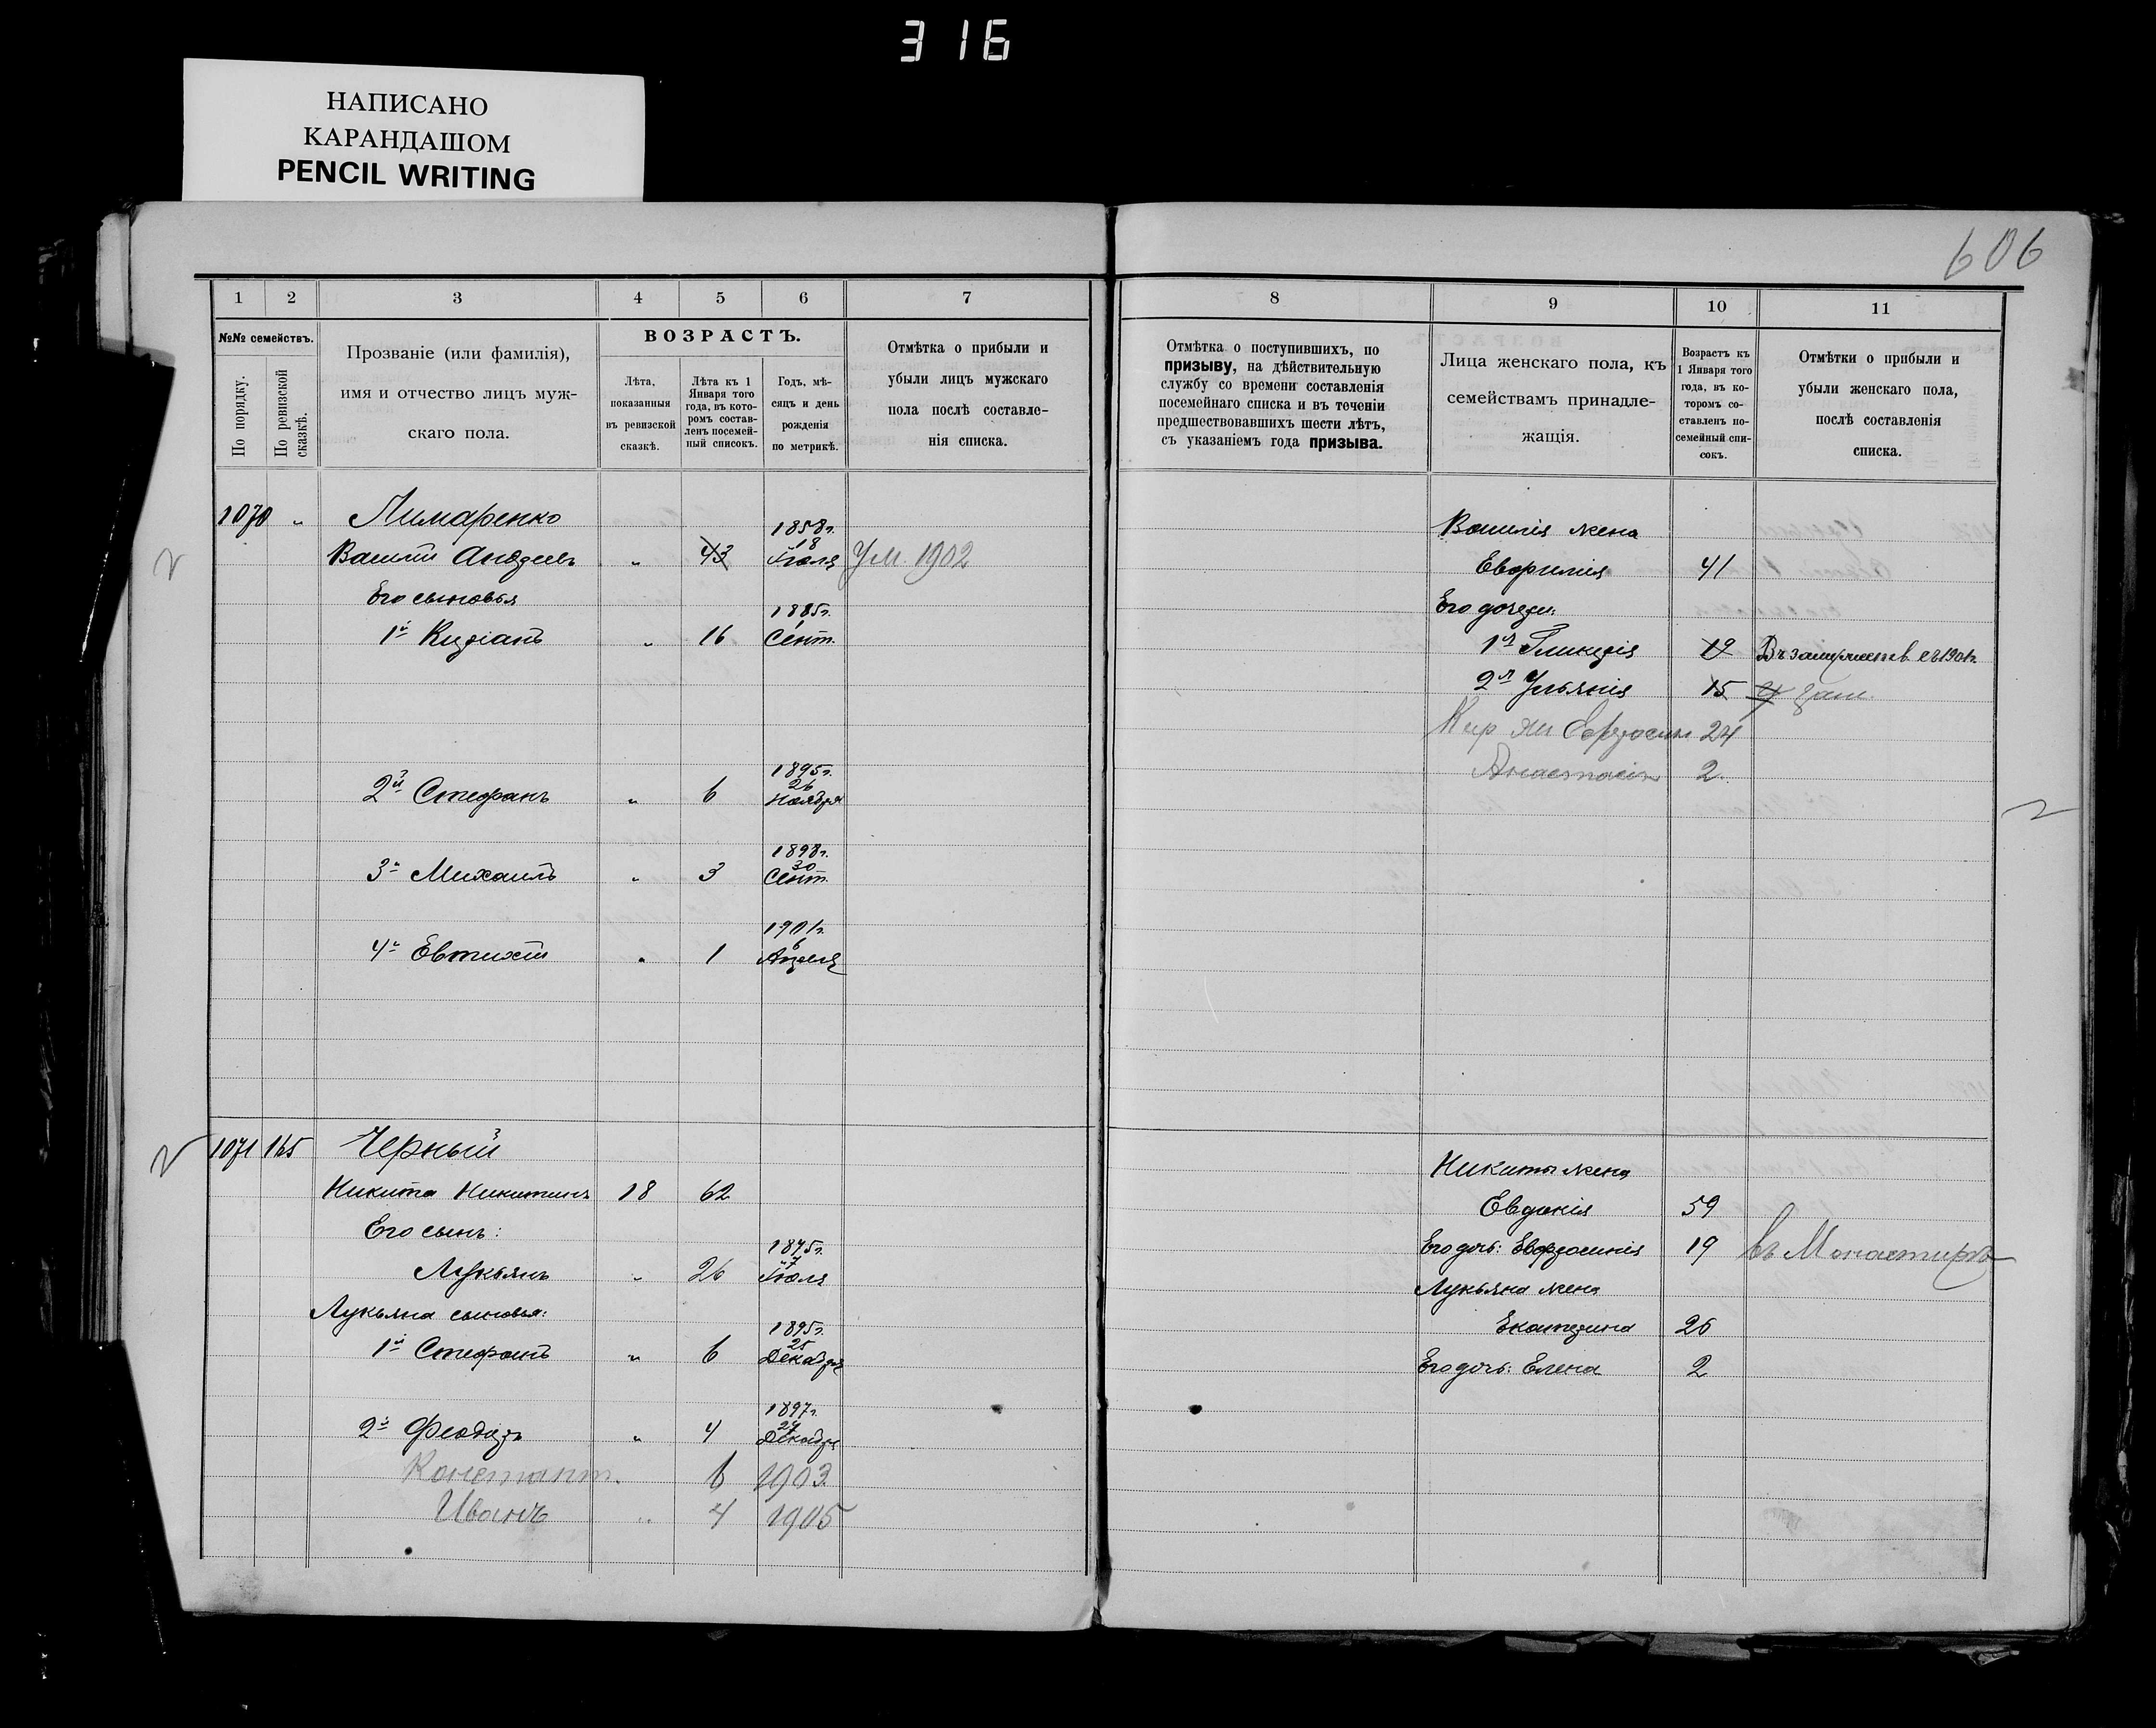 316
НАПИСАНО
КАРАНДАШОМ
PENCIL WRITING
606
1
2
3
4
5
6
7
8
9
10
11
№№ семействъ.
По порядку.
По ревизской сказкѣ.
Прозваніе (или фамилія),
имя и отчество лицъ муж-
скаго пола.
ВОЗРАСТЪ.
Лѣта,
показанныя
въ ревизской
сказкѣ.
Лѣта къ 1
Января того
года, въ кото-
ромъ состав-
ленъ посемей-
ный списокъ.
Годъ, мѣ-
сяцъ и день
рожденія
по метрикѣ.
Отмѣтка о прибыли и
убыли лицъ мужскаго
пола послѣ составле-
нія списка.
Отмѣтка о поступившихъ, по
призыву, на дѣйствительную
службу со времени составленія
посемейнаго списка и въ теченіи
предшествовавшихъ шести лѣтъ,
съ указаніемъ года призыва.
Лица женскаго пола, къ
семействамъ принадле-
жащія.
Возрастъ къ
1 Января того
года, въ ко-
торомъ со-
ставленъ по-
семейный спи-
сокъ.
Отмѣтки о прибыли и
убыли женскаго пола,
послѣ составленія
списка.
1070 " Лимаренко 1858г.
Василій Андреевъ " 43 18 Іюля Ум. 1902
Его сыновья
1й Кипріанъ " 16 1885г. Сент.
2й Стефанъ " 6 1895г. 26 Ноября
3й Михаилъ " 3 1898г. 30 Сент.
4й Евтихій " 1 1901г. 6 Апреля
Василія жена
Евфимія 41
Его дочери:
1я Гликерія 19 Въ замужеств. съ 1901г.
2я Ульянія 15 зам.
Кир. жен Ефросин 24
Анастасія 2
1071 165 Черный
Никита Никитинъ 18 62
Его сынъ:
Лукьянъ " 26 1875г. 7 Іюля
Лукьяна сыновья:
1й Стефанъ " 6 1895г. 25 Декабря
2й Феодоръ " 4 1897г. 24 Декабр.
Констант. 6 1903
Иванъ " 4 1905
Никиты жена
Евдокія 59
Его дочь: Евфросинія 19 въ Монастирѣ
Лукьяна жена
Екатерина 26
Его дочь: Елена 2